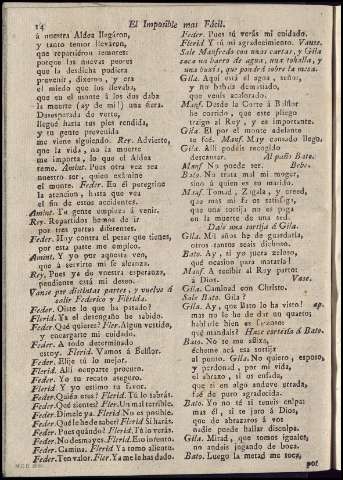 14
El Imposible mas Fácil.
á nuestra Aldea llegáron,
y tanto temor lleváron,
que repartiéron temores:
porque las nuevas peores
que la desdicha pudiera
prevenir, dixeron, y era
el miedo que los llevaba,
que en el monte á los dos daba
la muerte (ay de mí!) una fiera.
Desesperada de verte,
llegué hasta tus pies rendida,
y tu gente prevenida
me viene siguiendo. Rey. Advierte,
que la vida, no la muerte
me importa, lo que el Aldea
teme. Amint. Pues otra vez sea
nuestro ser, quien exâmine
el monte. Feder. En él peregrine
la atencion, hasta que vea
el fin de estos accidentes.
Amint. Tu gente empieza á venir.
Rey. Repartidos hemos de ir
por tres partes diferentes.
Feder. Hoy contra el pesar que tienes,
por esta parte me emplco.
Amint. Y yo por aquesta ven,
que á servirte mi fe alcanza.
Rey. Pues ya de vuestra esperanza,
pendiente está mi deseo.
Vanse por distintas partes, y vuelve á
salir Federico y Flérida.
Feder. Oiste lo que ha pasado?
Flerid. Ya el detengaño he sabido.
Feder. Qué quieres? Fler. Algun vestido,
y encargarte mi cuidado.
Feder. A todo determinado
estoy. Flerid. Vamos á Belflor.
Feder. Elije tú lo mejor.
Flerid. Allí ocuparte procuro.
Feder. Yo tu recato aseguro.
Flerid. Y yo estimo tu favor.
Feder. Quién eres? Flerid. Tú lo sabrás.
Feder. Qué sientes? Fler. Un mal terrible.
Feder. Dímele ya. Flerid. No es posible.
Feder. Qué he de saber? Flerid. Si harás.
Feder. Pues quándo? Flerid. Tú lo verás.
Feder. No desmayes. Flerid. Eso intento.
Feder. Camina. Flerid. Ya tomo aliento.
Feder. Ten valor. Fler. Ya me le has dado.
Feder. Pues tú verás mi cuidado.
Flerid. Y tú mi agradecimiento. Vanse.
Sale Manfredo con unas cartas, y Gila
saca un barro de agua, una tohalla, y
una bugía, que pondrá sobre la mesa.
Gila. Aquí está el agua, señor,
y no bebais demasiado,
que venis acalorado.
Manf. Desde la Corte á Belflor
he corrido, que este pliego
traigo al Rey, y es importante.
Gila. El por el monte adelante
se fué. Manf. Muy cansado llego.
Gila. Allí podeis recogido
descansar. Al paño Bato.
Manf. No puede ser. Bebe.
Bato. No trata mal mi mogar,
sino á quien es su marido.
Manf. Tomad, Zagala, y creed,
que mas mi fe os satisfaga,
que una sortija no es paga
en la muerte de una sed.
Dale una sortija á Gila.
Gila. Mil años he de guardarla,
otros tantos seais dichoso.
Bato. Ay, si yo fuera zeloso,
qué ocasion para matarla!
Manf. A recibir al Rey parto
á Dios. Vase.
Gila. Caminad con Christo.
Sale Bato. Gila?
Gila. Ay, que Bato lo ha visto! ap.
mas no le he de dar un quarto;
habrále bien en Franzes
qué mandais? Hace cortesía á Bato.
Bato. No te me aflixo,
écheme acá esa sortija
al punto. Gila. No quiero, esposo,
y perdonad, por mi vida,
el abrazo, si os enfada,
que si en algo anduve errada,
fué de puro agradecida.
Bato. Yo no té té tenéis culpas
mas él, si te juro á Dios,
que de abrazaros á vos
nadie puede hallar disculpa.
Gila. Mirad, que somos iguales,
no andais jugando de boca.
Bato. Luego la metad me toca,
por